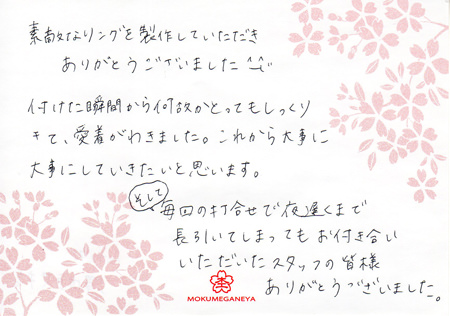 素敵なリングを製作していただき
ありがとうございました^^
付けた瞬間から何故かとってもしっくり
きて、愛着がわきました。これから大事に
大事にしていきたいと思います。
そして
毎回の打合せで夜遅くまで
長引いてしまってもお付き合い
いただいたスタッフの皆様
ありがとうございました。
MOKUMEGANEYA